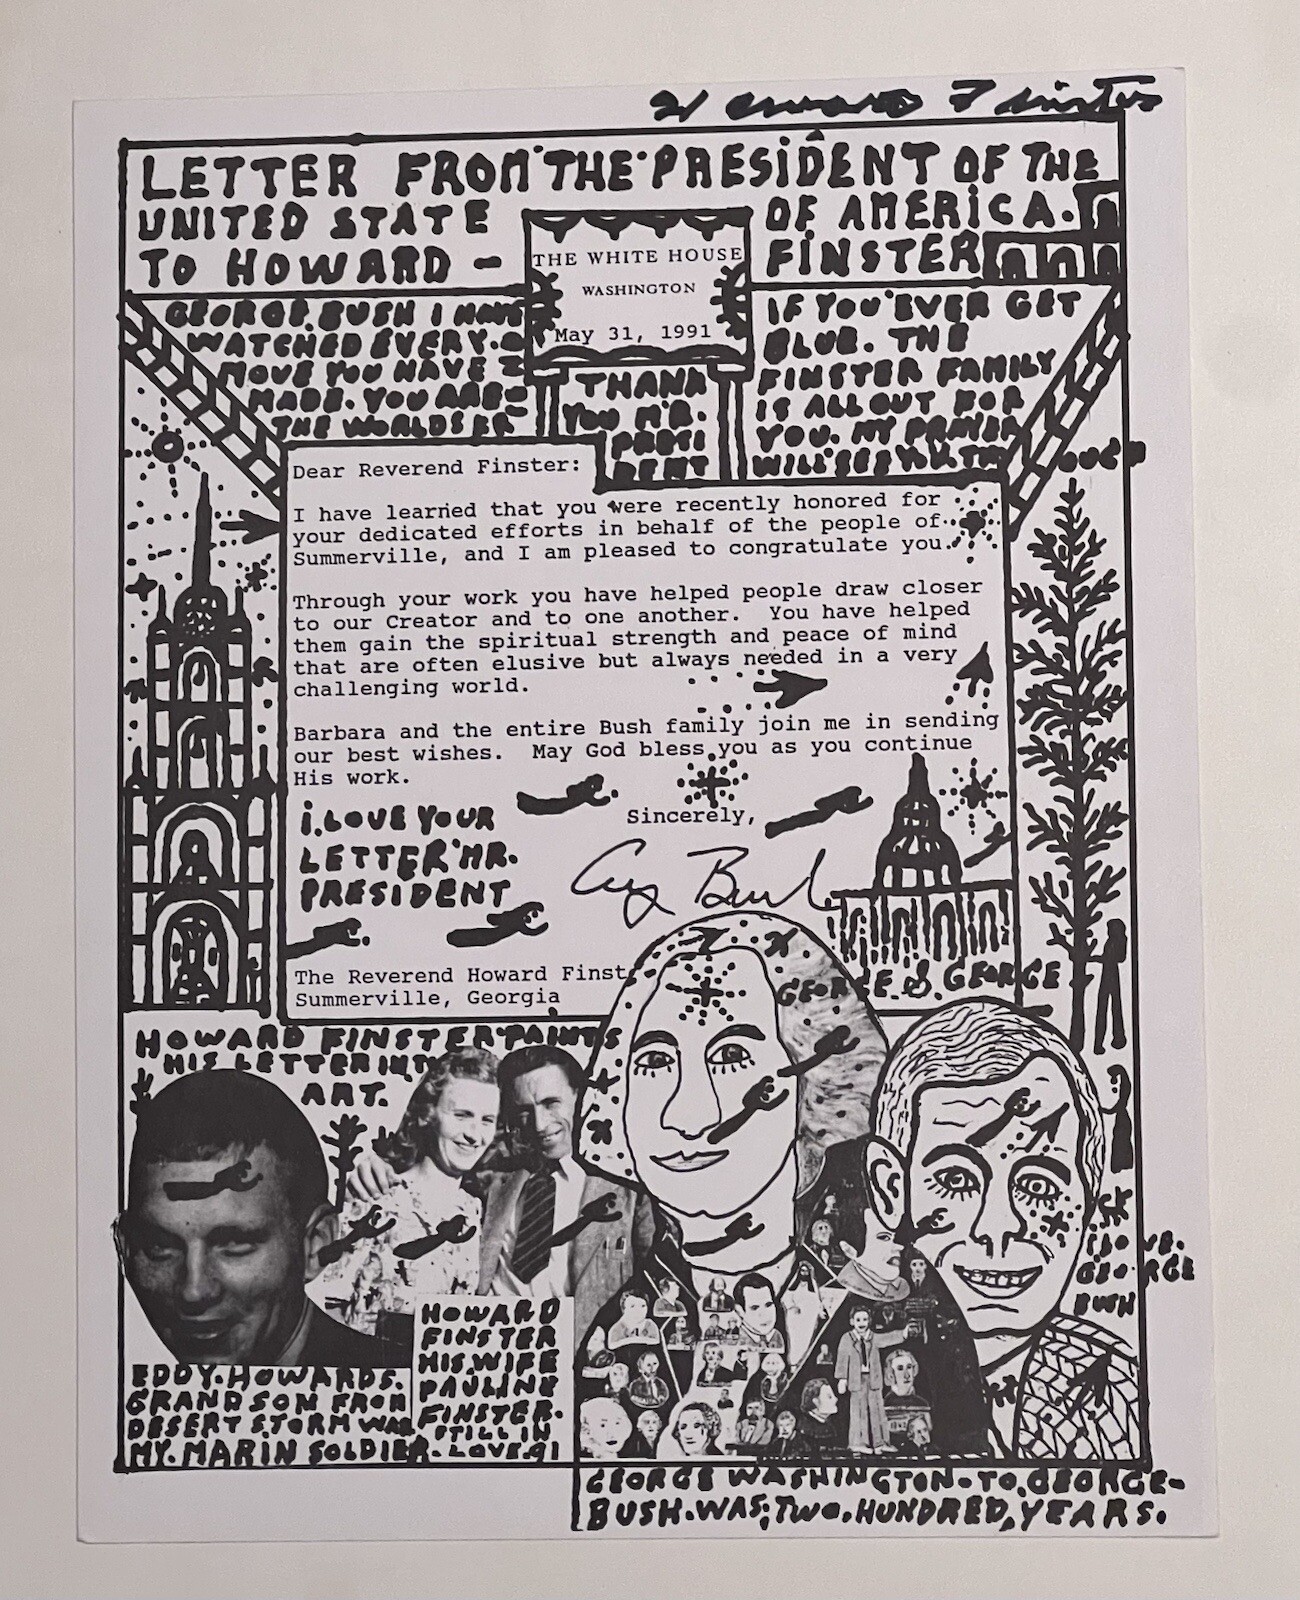 Howard Finster
LETTER FROM THE PRESIDENT OF THE
UNITED STATE OF AMERICA.
TO HOWARD - FINSTER
THE WHITE HOUSE
WASHINGTON
May 31, 1991
GEORGE. BUSH I HAVE
WATCHED EVERY.
MOVE YOU HAVE
MADE. YOU ARE-
THE WORLDS
THANK
YOU MR.
PRESI
DENT
IF YOU EVER GET
BLUE. THE
FINSTER FAMILY
IS ALL OUT FOR
YOU. MY PRAYER
WILL SEE YOU.
Dear Reverend Finster:
I have learned that you were recently honored for
your dedicated efforts in behalf of the people of
Summerville, and I am pleased to congratulate you.
Through your work you have helped people draw closer
to our Creator and to one another. You have helped
them gain the spiritual strength and peace of mind
that are often elusive but always needed in a very
challenging world.
Barbara and the entire Bush family join me in sending
our best wishes. May God bless you as you continue
His work.
Sincerely,
i.LOVE YOUR
LETTER MR.
PRESIDENT
The Reverend Howard Finst
Summerville, Georgia
GEORGE. &. GEORGE
HOWARD FINSTER PAINTS
HIS LETTER INTO
ART.
I LOVE.
GEORGE
BUSH
EDDY. HOWARDS.
GRAND SON FROM
DESERT STORM WAR
MY. MARIN SOLDIER.
HOWARD
FINSTER
HIS WIFE
PAULINE
FINSTER.
STILL IN
LOVE. 91
GEORGE WASHINGTON-TO.GEORGE-
BUSH.WAS,TWO.HUNDRED,YEARS.